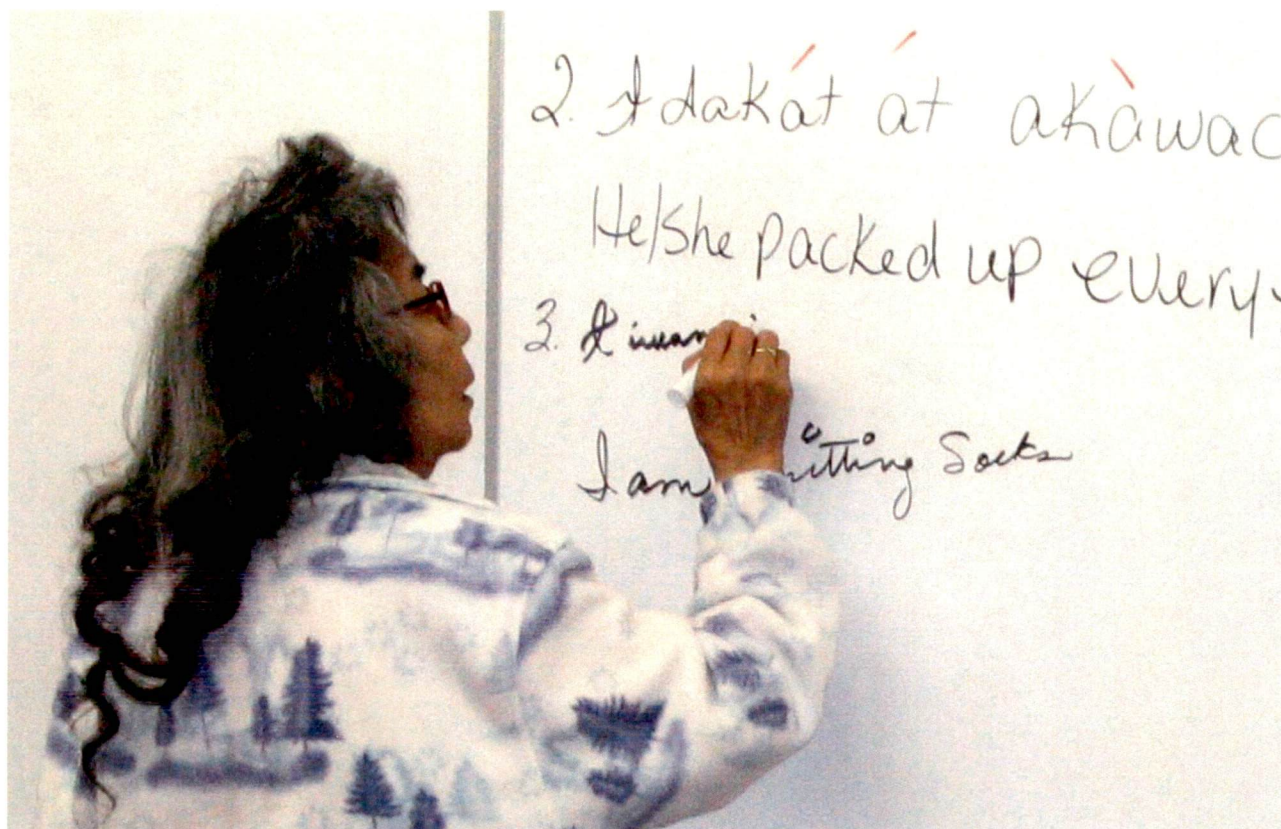 2. Ldakát át akàwac
He/she packed up every
3.
I am itting Socks